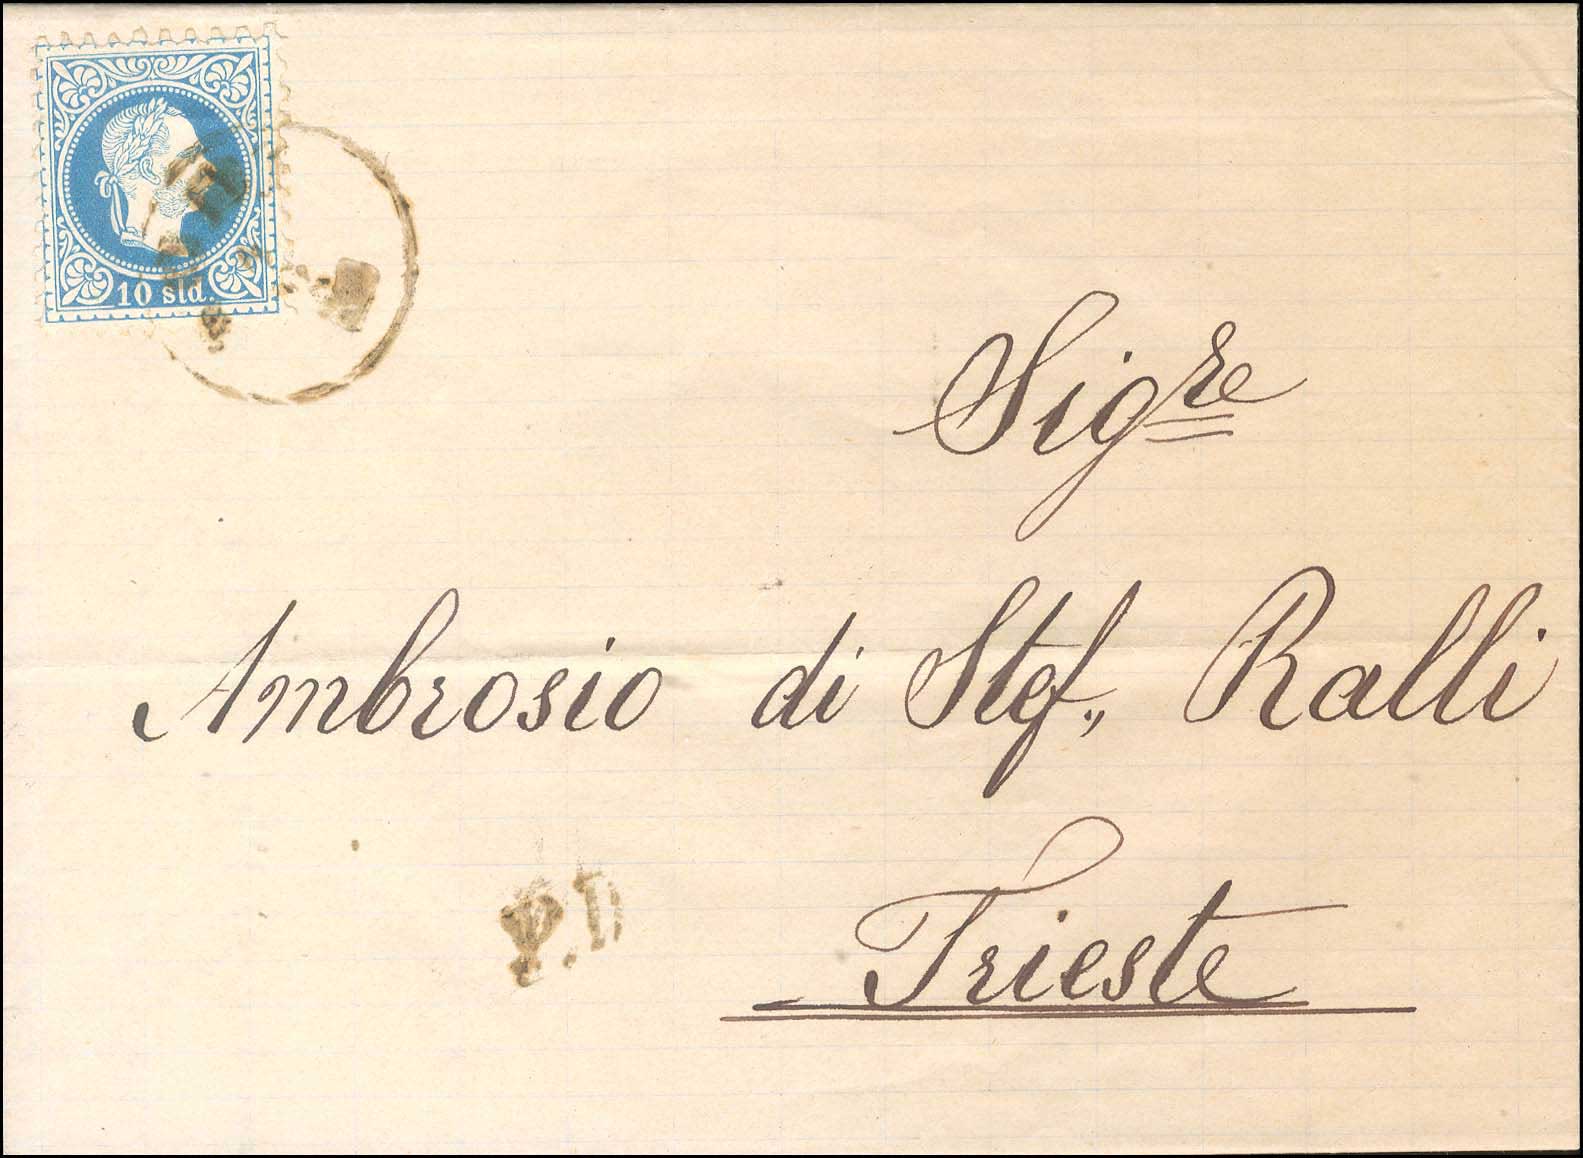 10 sld.
Sigre
Ambrosio di Stef., Ralli
P.D
Trieste